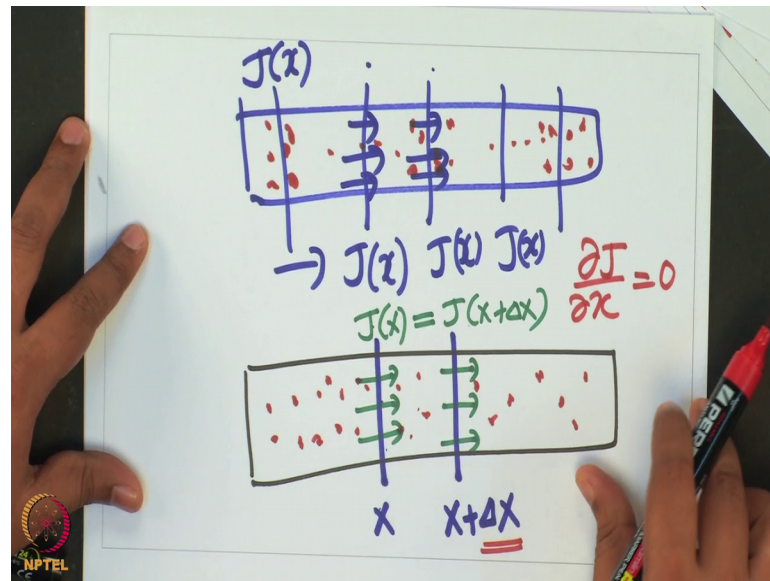 J(x)
→ J(x) J(x) J(x)
∂J/∂x = 0
J(x) = J(x+Δx)
x x+Δx
NPTEL